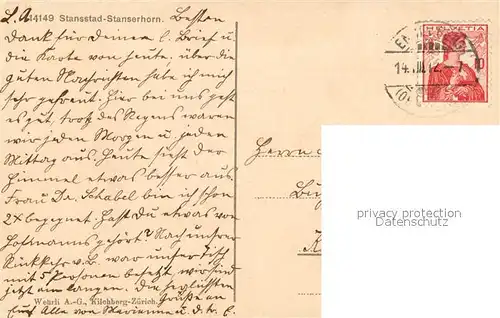 14149 Stansstad-Stanserhorn.
L. A. Besten
Dank für Deinen l. Brief u.
die Karte von heute, über die
guten Nachrichten habe ich mich
sehr gefreut. Hier bei uns geht
es gut, trotz des Regens waren
wir jeden Morgen u. jeden
Mittag aus. Heute sieht der
Himmel etwas besser aus.
Frau Dr. Schabel bin ich schon
2x begegnet. Hast Du etwas von
Hofmanns gehört? Nach unsrer
Rückkehr v. B. war unser Tisch
mit 5 Personen besetzt, wir sind
jetzt am langen. Die herzlichsten
Wehrli A.-G., Kilchberg-Zürich.
Grüße an
Euch Alle von Marianne u. d. tr. C.
HELVETIA
14. III. 12
Herrn
privacy protection
Datenschutz